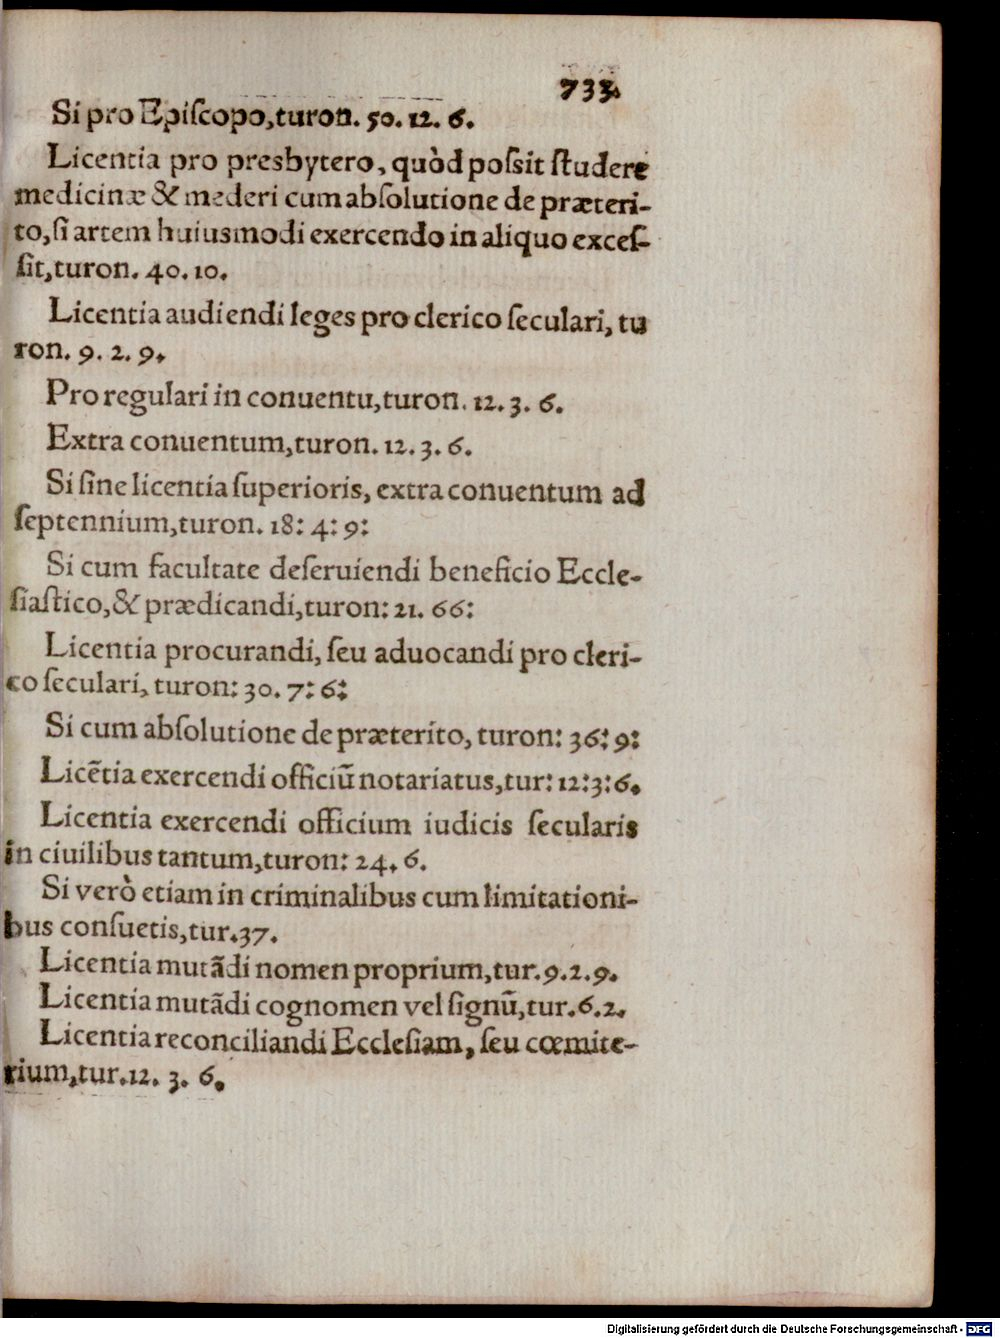 733.
Si pro Epiſcopo,turon. 50. 12. 6.
Licentia pro presbytero, quòd poſsit ſtudere
medicinæ & mederi cum abſolutione de præteri-
to,ſi artem huiusmodi exercendo in aliquo exceſ-
ſit,turon. 40. 10.
Licentia audiendi leges pro clerico ſeculari, tu
ron. 9. 2. 9.
Pro regulari in conuentu,turon. 12. 3. 6.
Extra conuentum,turon. 12. 3. 6.
Si ſine licentia ſuperioris, extra conuentum ad
ſeptennium,turon. 18: 4: 9:
Si cum facultate deſeruiendi beneficio Eccle-
ſiaſtico,& prædicandi,turon: 21. 66:
Licentia procurandi, ſeu aduocandi pro cleri-
co ſeculari, turon: 30. 7: 6:
Si cum abſolutione de præterito, turon: 36: 9:
Licẽtia exercendi officiũ notariatus,tur: 12:3:6.
Licentia exercendi officium iudicis ſecularis
in ciuilibus tantum,turon: 24. 6.
Si verò etiam in criminalibus cum limitationi-
bus conſuetis,tur.37.
Licentia mutãdi nomen proprium,tur.9.2.9.
Licentia mutãdi cognomen vel ſignũ,tur.6.2.
Licentia reconciliandi Eccleſiam, ſeu cœmite-
rium,tur.12. 3. 6.
Digitalisierung gefördert durch die Deutsche Forschungsgemeinschaft - DFG